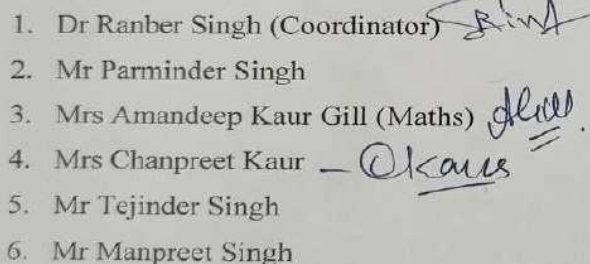 1. Dr Ranber Singh (Coordinator)
2. Mr Parminder Singh
3. Mrs Amandeep Kaur Gill (Maths)
4. Mrs Chanpreet Kaur –
5. Mr Tejinder Singh
6. Mr Manpreet Singh